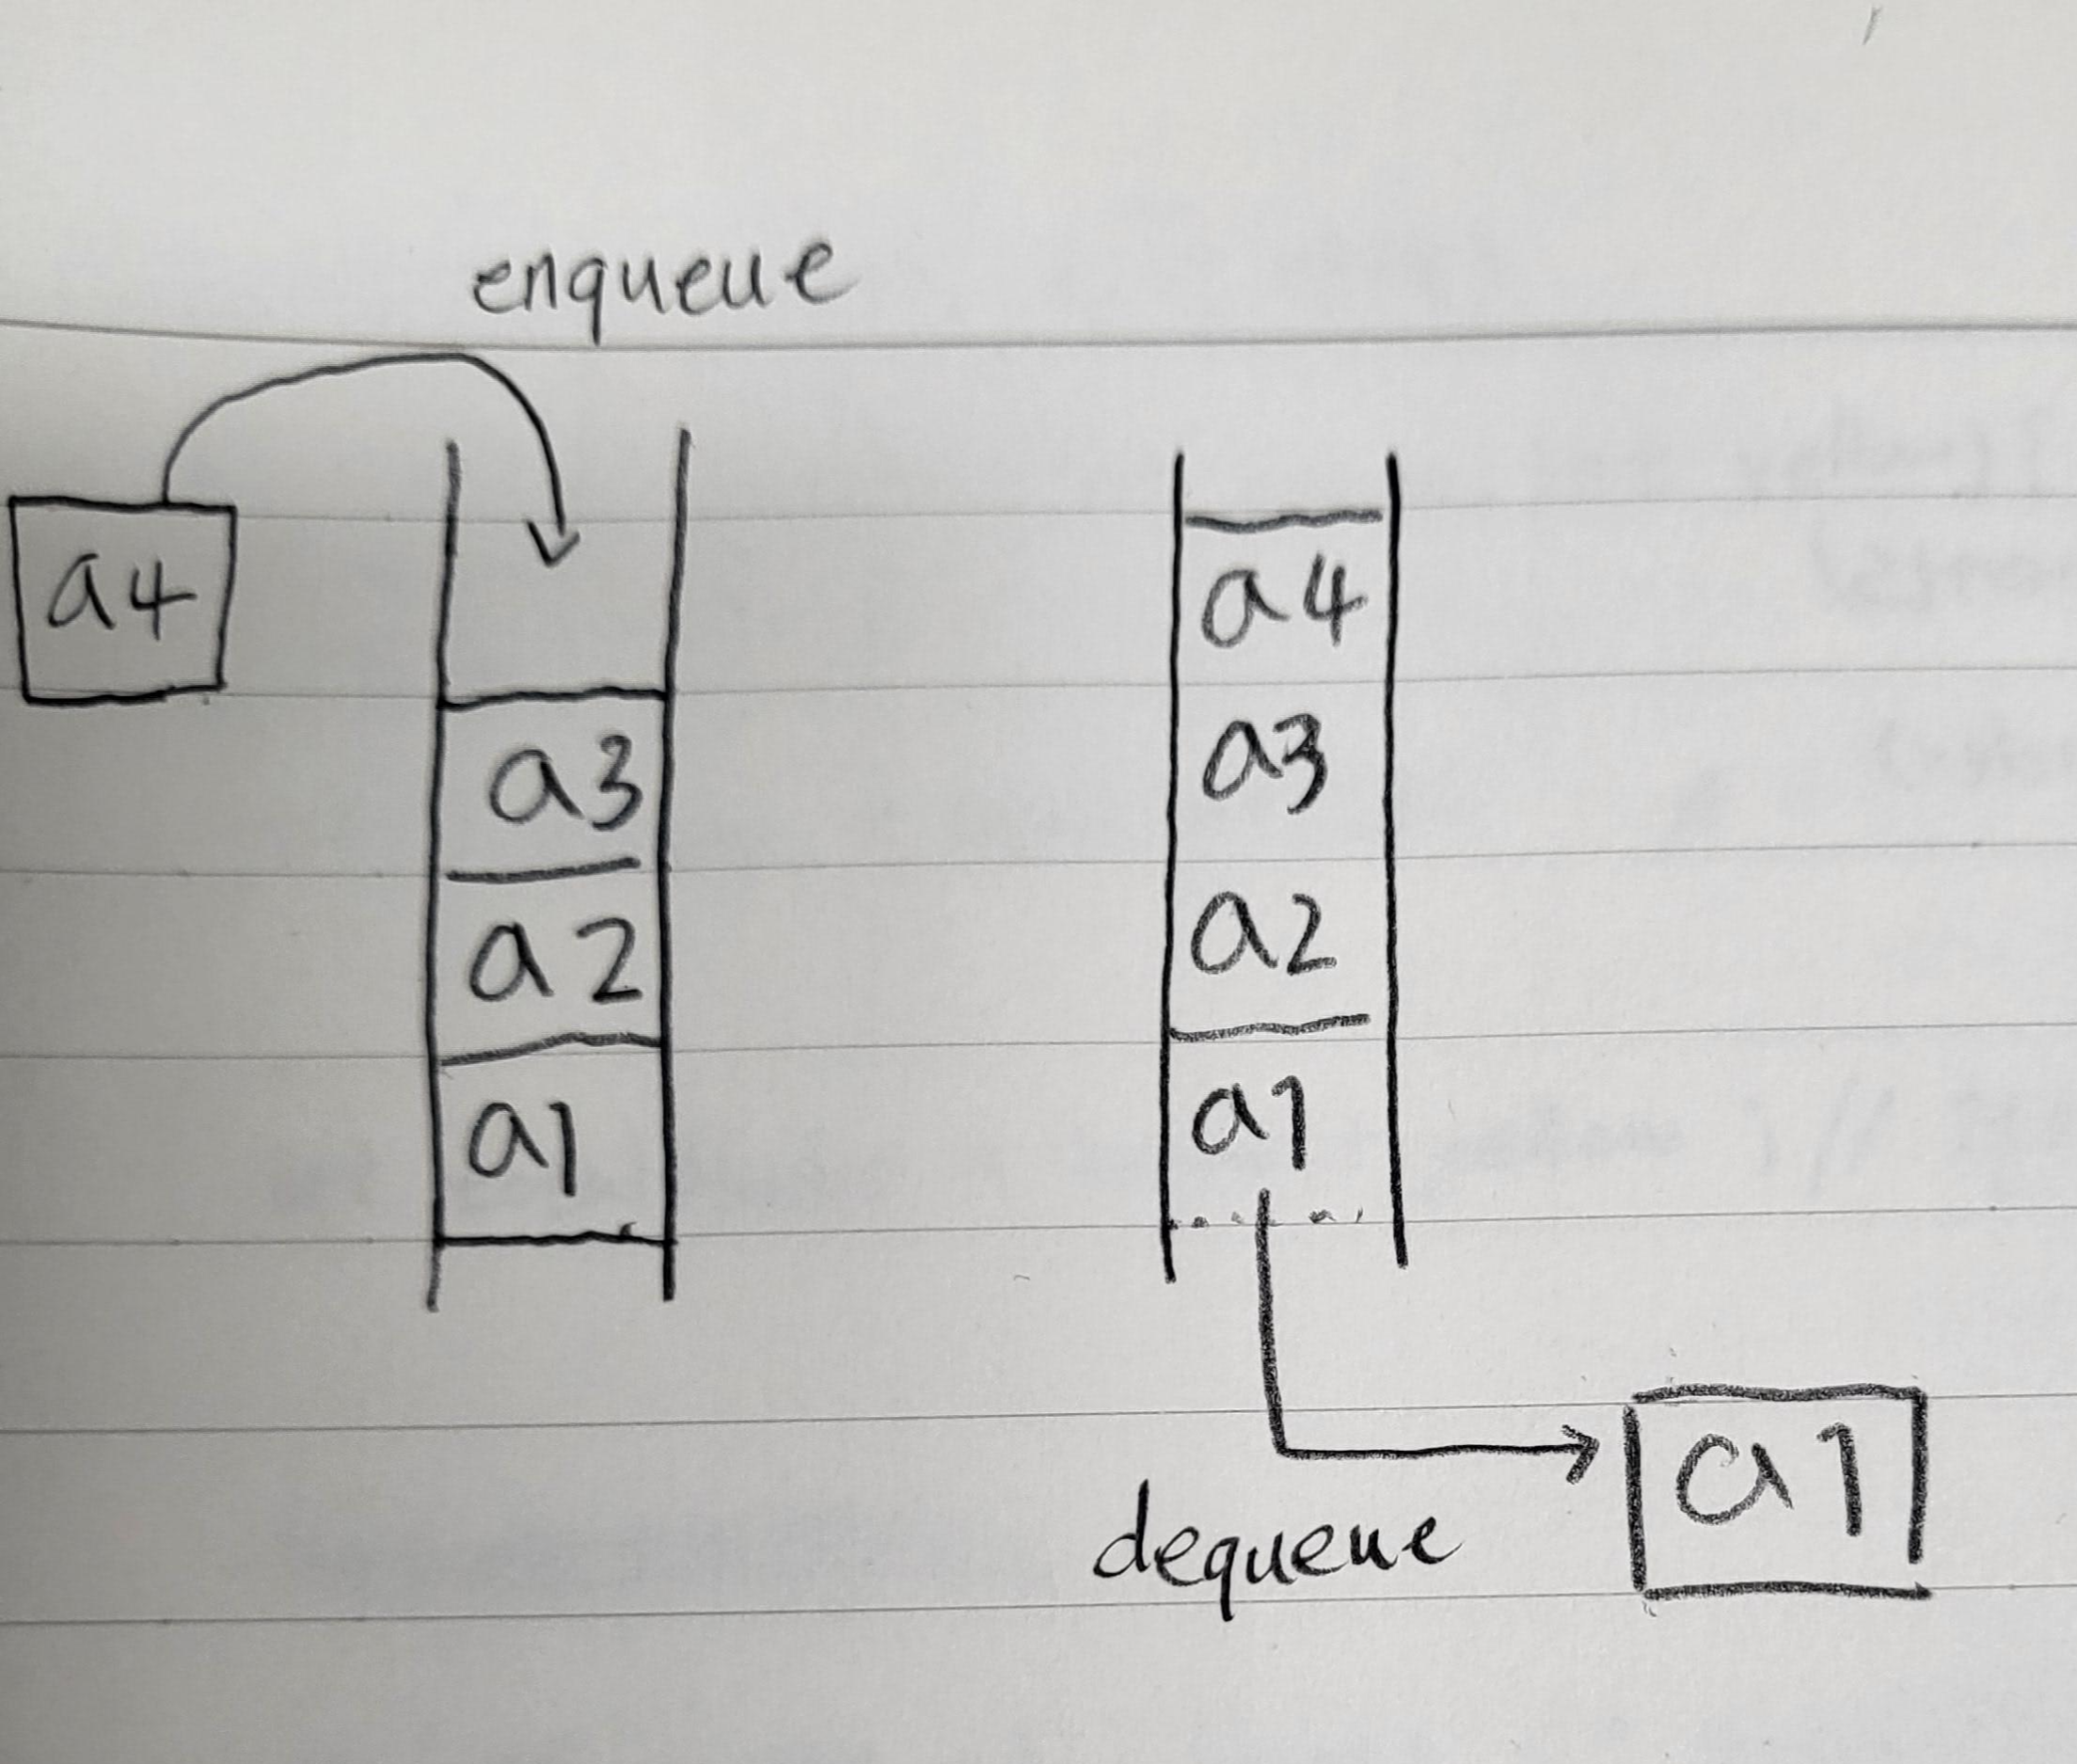 enqueue
a4
a3
a2
a1
a4
a3
a2
a1
dequeue
a1